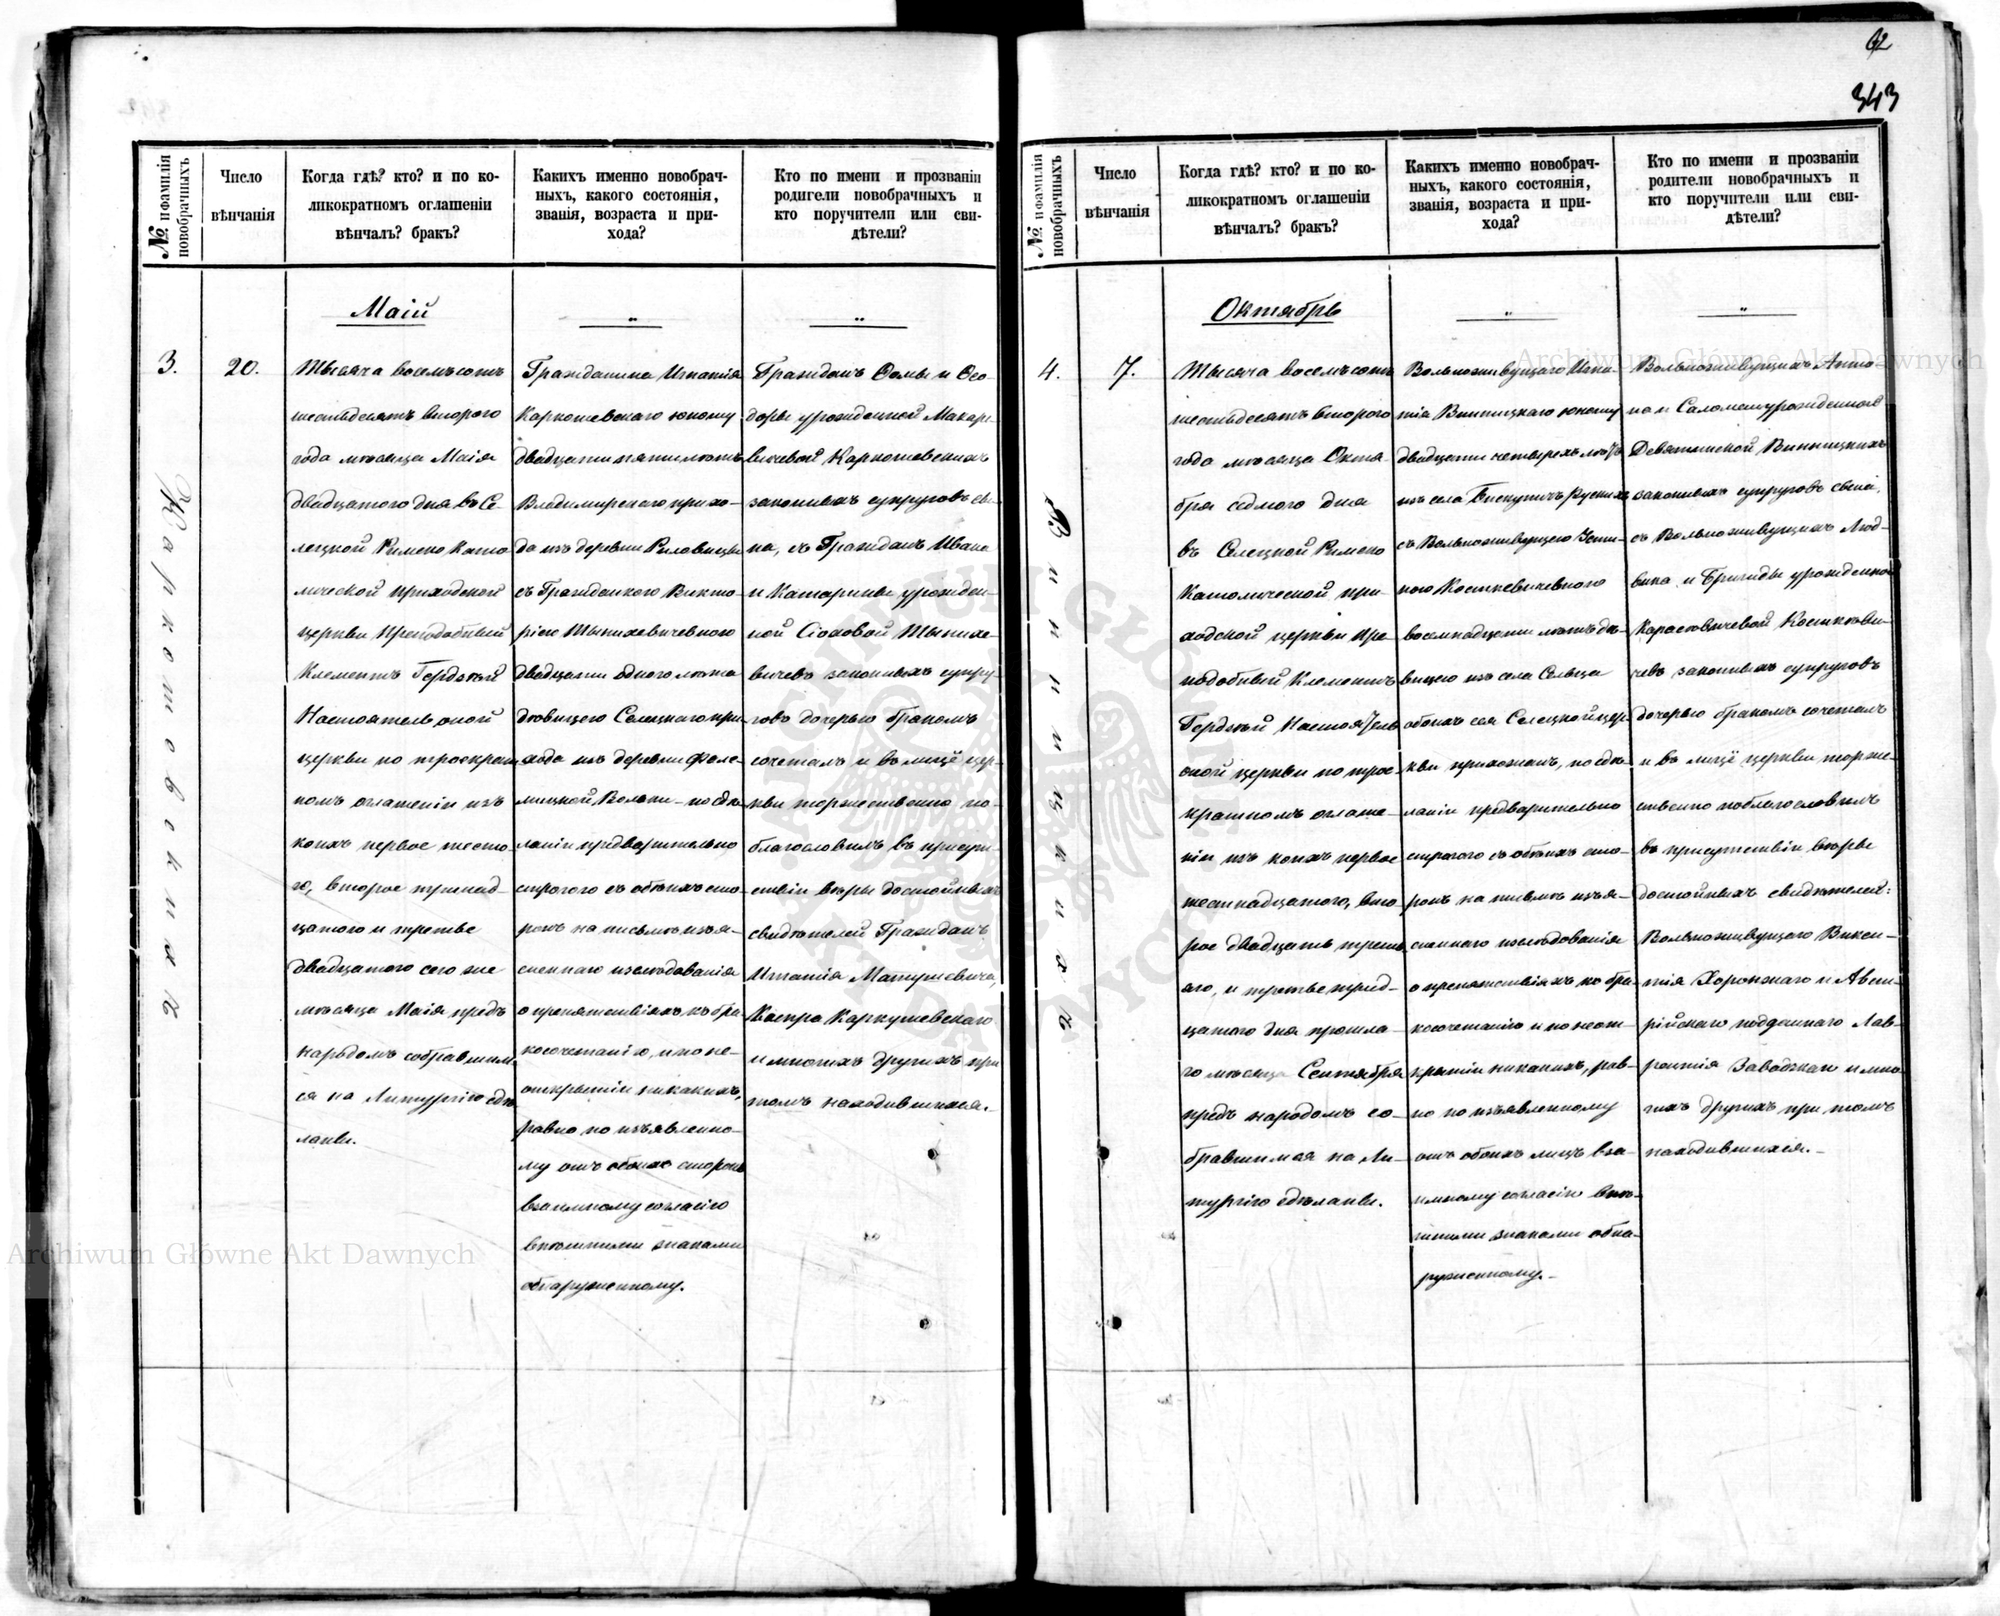 62
343
№ и фамилія новобрачныхъ
Число вѣнчанія
Когда гдѣ? кто? и по ко-
ликократномъ оглашеніи
вѣнчалъ? бракъ?
Какихъ именно новобрач-
ныхъ, какого состоянія,
званія, возраста и при-
хода?
Кто по имени и прозванію
родители новобрачныхъ и
кто поручители или сви-
дѣтели?
Маій
3.
20.
Каркошевскихъ
Тысяча восемьсотъ
шестьдесятъ втораго
года мѣсяца Маія
двадцатого дня въ Се-
лецкой Римско Като-
лической приходской
церкви Преподобный
Клементъ Гердзѣй
Настоятель оной
церкви по троекрат-
номъ оглашеніи изъ
коихъ первое шесто-
го, второе тринад-
цатого и третье
двадцатого сего же
мѣсяца Маія предъ
народомъ собравшим-
ся на Литургію сдѣ-
ланы.
Гражданина Игнатія
Каркошевскаго юношу
двадцати пяти лѣтъ
Владимирскаго прихо-
да изъ деревни Риловицы
съ Гражданкою Викто-
ріею Тынкевичевною
двадцати одного лѣта
дѣвицею Селецкаго при-
хода изъ деревни
Вольки по сдѣ-
ланіи предварительно
строгого съ обѣихъ сто-
ронъ на письмѣ изъя-
сненнаго изслѣдованія
о препятствіяхъ къ бра-
косочетанію, и по не-
открытіи никакихъ,
равно по изъявленно-
му отъ обѣихъ сторонъ
взаимному согласію
внѣшними знаками
обнаруженному.
Гражданъ Ѳомы и Ѳео-
доры урожденной Макаре-
вичевой Каркошевскихъ
законныхъ супруговъ сы-
на, съ Гражданъ Ивана
и Катарины урожден-
ной
вичевъ законныхъ супру-
говъ дочерью бракомъ
сочеталъ и въ лицѣ цер-
кви торжественно по-
благословилъ въ присут-
ствіи вѣры достойныхъ
свидѣтелей Гражданъ
Игнатія Матушевича,
Каспра Каркушевскаго
и многихъ другихъ при
томъ находившихся.
№ и фамилія новобрачныхъ
Число вѣнчанія
Когда гдѣ? кто? и по ко-
ликократномъ оглашеніи
вѣнчалъ? бракъ?
Какихъ именно новобрач-
ныхъ, какого состоянія,
званія, возраста и при-
хода?
Кто по имени и прозванію
родители новобрачныхъ и
кто поручители или сви-
дѣтели?
Октябрь
4.
7.
Винницкихъ
Тысяча восемьсотъ
шестьдесятъ втораго
года мѣсяца Октя-
бря седмого дня
въ Селецкой Римско
Католической при-
ходской церкви Пре-
подобный Клементъ
Гердзѣй Настоятель
оной церкви по трое-
кратномъ оглаше-
ніи изъ коихъ первое
шестнадцатого, вто-
рое двадцать треть-
аго, и третье трид-
цатого дня прошла-
го мѣсяца Сентября
предъ народомъ со-
бравшимся на Ли-
тургію сдѣланы.
Вольноживущаго Игна-
тія Винницкаго юношу
двадцати четырехъ лѣтъ
изъ села Бискупичъ Рускихъ
съ Вольноживущею Усти-
ною Косткевичевною
восемнадцати лѣтъ дѣ-
вицею изъ села Сельца
обоихъ сея Селецкой цер-
кви прихожанъ, по сдѣ-
ланіи предварительно
строгого съ обѣихъ сто-
ронъ на письмѣ изъя-
сненнаго изслѣдованія
о препятствіяхъ къ бра-
косочетанію и по неот-
крытіи никакихъ, рав-
но по изъявленному
отъ обоихъ лицъ вза-
имному согласію внѣ-
шними знаками обна-
руженному.
Вольноживущихъ Анто-
на и Саломеи урожденной
Девятинской Винницкихъ
законныхъ супруговъ сына,
съ Вольноживущихъ Люд-
вика и Бригиды урожденной
Карасевичевой Косткеви-
чевъ законныхъ супруговъ
дочерью бракомъ сочеталъ
и въ лицѣ церкви торже-
ственно поблагословилъ
въ присутствіи вѣры
достойныхъ свидѣтелей:
Вольноживущаго Викен-
тія Хоронжаго и Авст-
рійскаго подданнаго Лав-
рентія Завадзкаго и мно-
гихъ другихъ при томъ
находившихся.
Archiwum Główne Akt Dawnych
Archiwum Główne Akt Dawnych